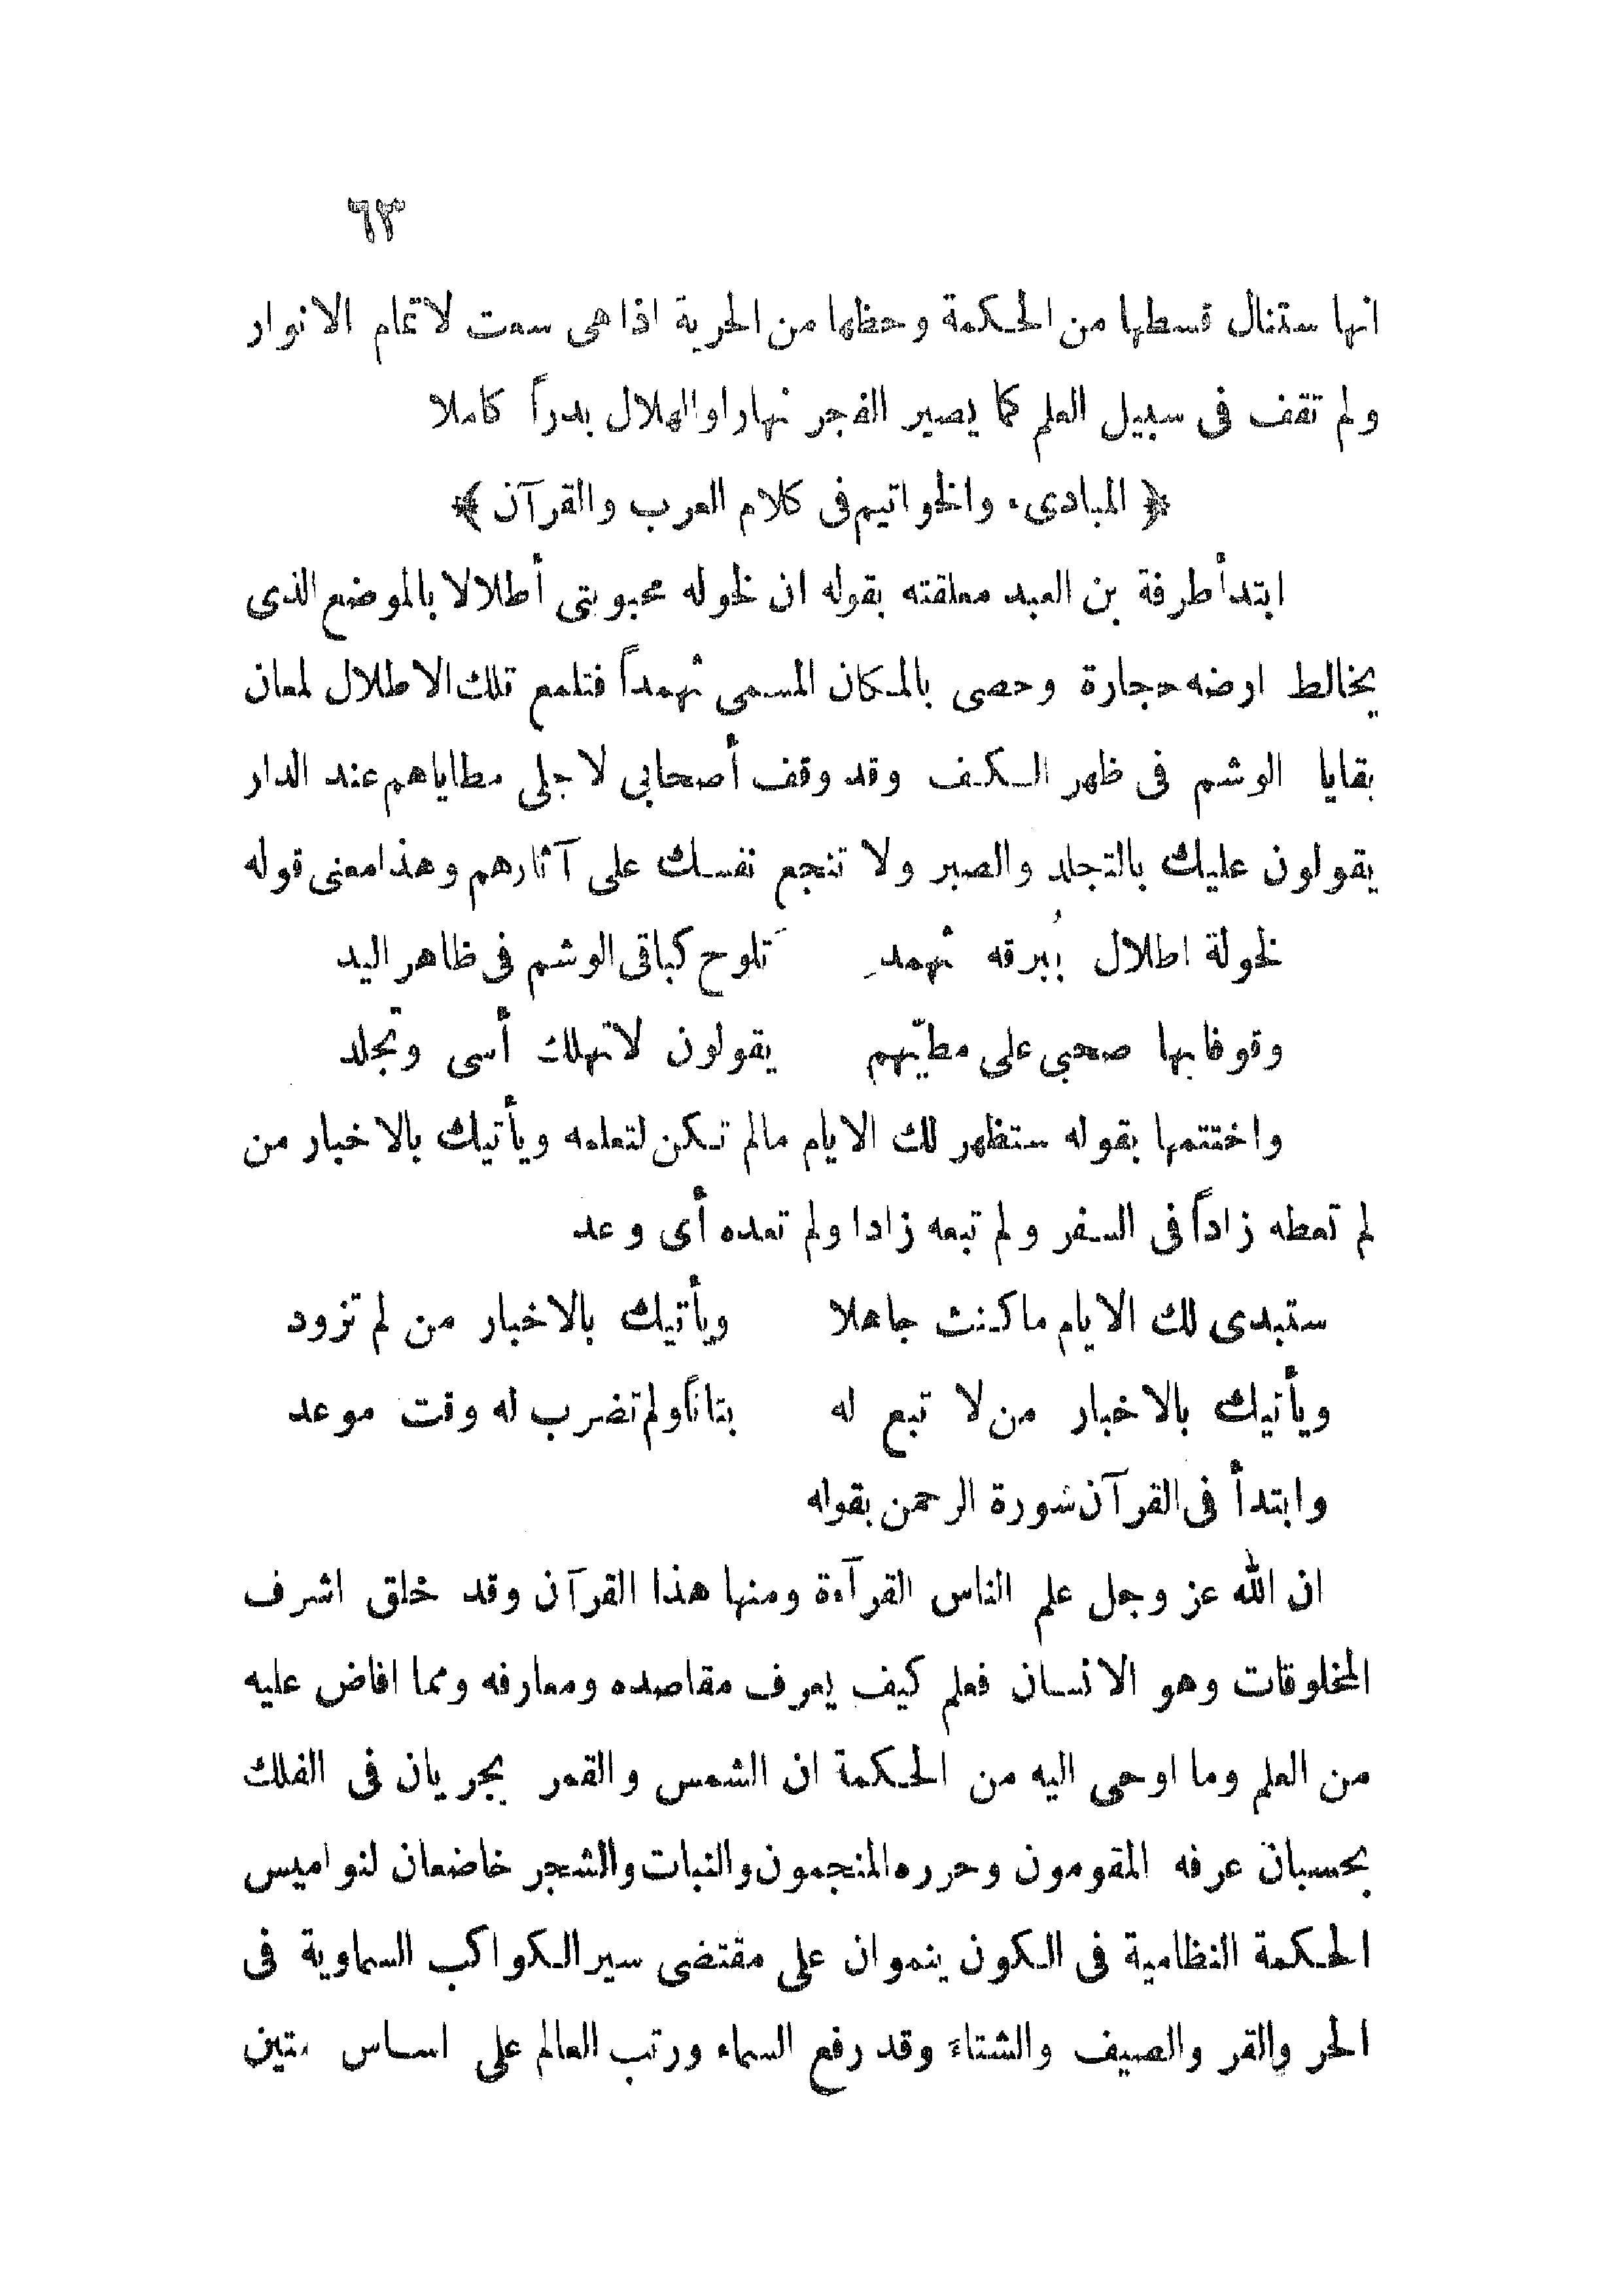 ٦٣
انها ستنال قسطها من الحكمة وحظها من الحرية اذا هى سعت لاتمام الانوار
ولم تقف فى سبيل العلم كما يصير الفجر نهارا والهلال بدراً كاملا
﴿ المبادىء والخواتيم فى كلام العرب والقرآن ﴾
ابتدأ طرفة بن العبد معلقته بقوله ان لخوله محبوبتى أطلالا بالموضع الذى
يخالط ارضه حجارة وحصى بالمكان المسمى ثهمداً فتلمع تلك الاطلال لمعان
بقايا الوشم فى ظهر الكف وقد وقف أصحابى لاجلى مطاياهم عند الدار
يقولون عليك بالتجلد والصبر ولا تنجع نفسك على آثارهم وهذا معنى قوله
لخولة اطلال ببُرقه ثهمدِ تَلوح كباقى الوشم فى ظاهر اليد
وقوفا بها صحبى على مطيّهم يقولون لاتهلك أسى وتجلد
واختتمها بقوله ستظهر لك الايام مالم تكن لتعلمه ويأتيك بالاخبار من
لم تعطه زاداً فى السفر ولم تبعه زادا ولم تعده أى وعد
ستبدى لك الايام ما كنت جاهلا ويأتيك بالاخبار من لم تزود
ويأتيك بالاخبار من لا تبع له بتاتاً ولم تضرب له وقت موعد
وابتدأ فى القرآن سورة الرحمن بقوله
ان الله عز وجل علم الناس القرآءة ومنها هذا القرآن وقد خلق اشرف
المخلوقات وهو الانسان فعلم كيف يعرف مقاصده ومعارفه ومما افاض عليه
من العلم وما اوحى اليه من الحكمة ان الشمس والقمر يجريان فى الفلك
بحسبان عرفه المقومون وحرره المنجمون والنبات والشجر خاضعان لنواميس
الحكمة النظامية فى الكون ينموان على مقتضى سير الكواكب السماوية فى
الحر والقر والصيف والشتاء وقد رفع السماء ورتب العالم على اساس متين